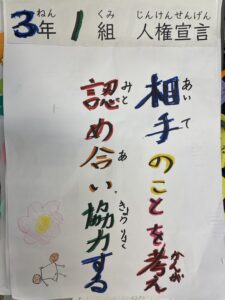 3年1組 人権宣言
ねん くみ じんけんせんげん
相手のことを考え
あいて かんが
認め合い、協力する
みと あ きょうりょく